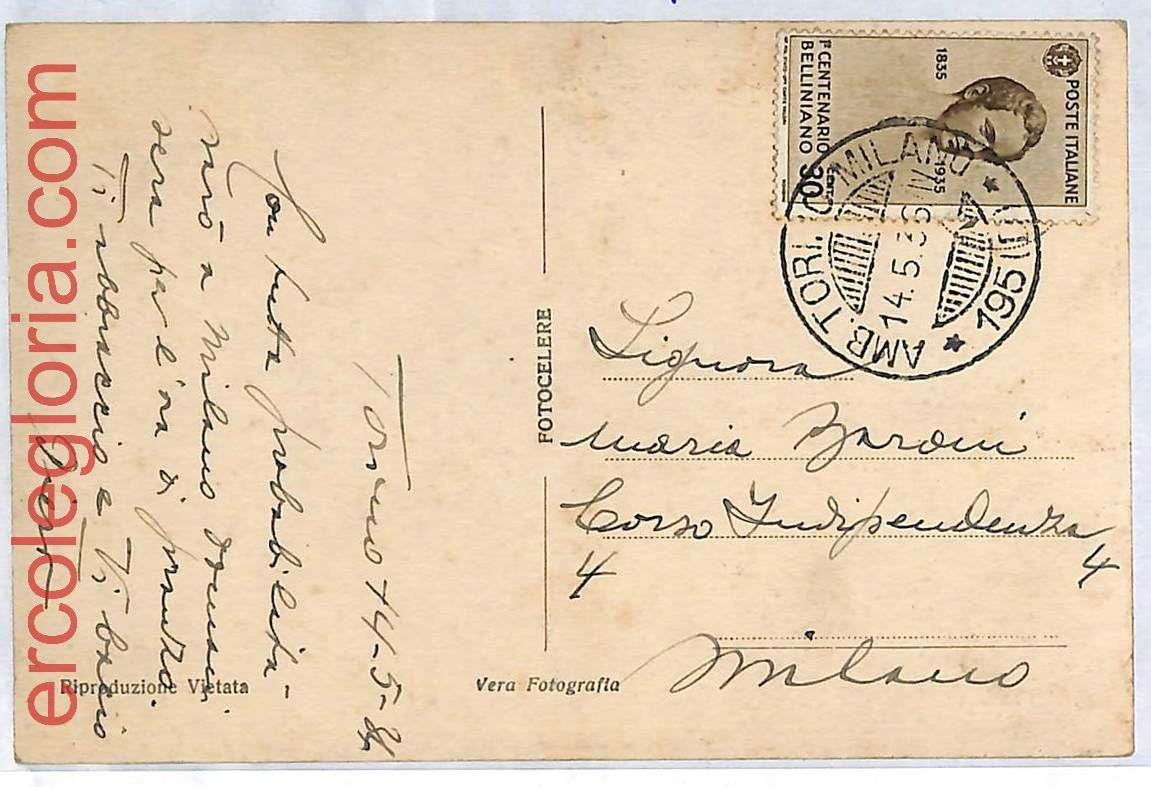 ercolegloria.com
Torino 14-5-
Con tutta probabilità
sarò a Milano domani
sera per l'ora di pranzo.
Ti abbraccio e Ti bacio
FOTOCELERE
Riproduzione Vietata
Vera Fotografia
POSTE ITALIANE
1835
1935
1° CENTENARIO
BELLINIANO
CENT. 30
AMB. TORI. MILANO
195
14.5.36
Signora
Maria Baroni
Corso Indipendenza
4 4
Milano